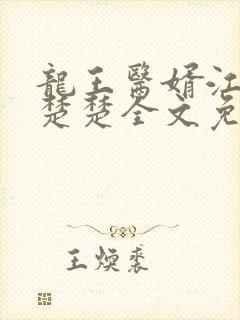 龍王醫婿江
楚楚全文免
王煥裘